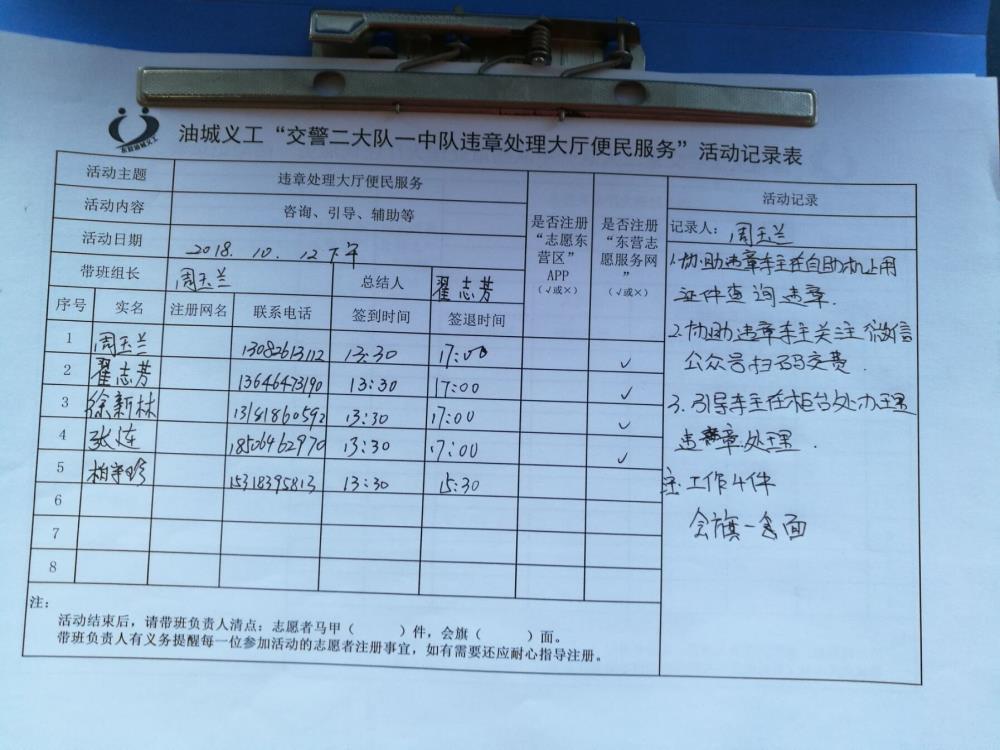 东营油城义工
油城义工“交警二大队一中队违章处理大厅便民服务”活动记录表
活动主题 违章处理大厅便民服务
活动内容 咨询、引导、辅助等
活动日期 2018. 10. 12下午
带班组长 周玉兰 总结人 翟志芳
序号 实名 注册网名 联系电话 签到时间 签退时间
是否注册“志愿东营区”APP(√或×)
是否注册“东营志愿服务网”(√或×)
1 周玉兰 13082613112 13:30 17:00 ✓
2 翟志芳 13646473190 13:30 17:00 ✓
3 徐新林 13181860592 13:30 17:00 ✓
4 张连 18506462970 13:30 17:00 ✓
5 柏 珍 15318395813 13:30 15:30
6
7
8
注：
活动结束后，请带班负责人清点：志愿者马甲（ ）件，会旗（ ）面。
带班负责人有义务提醒每一位参加活动的志愿者注册事宜，如有需要还应耐心指导注册。
活动记录
记录人：周玉兰
1.协助违章车主在自助机上用
证件查询违章.
2.协助违章车主关注微信
公众号扫码交费.
3.引导车主在柜台处办理
违章处理.
注:工作4件
会旗一 面